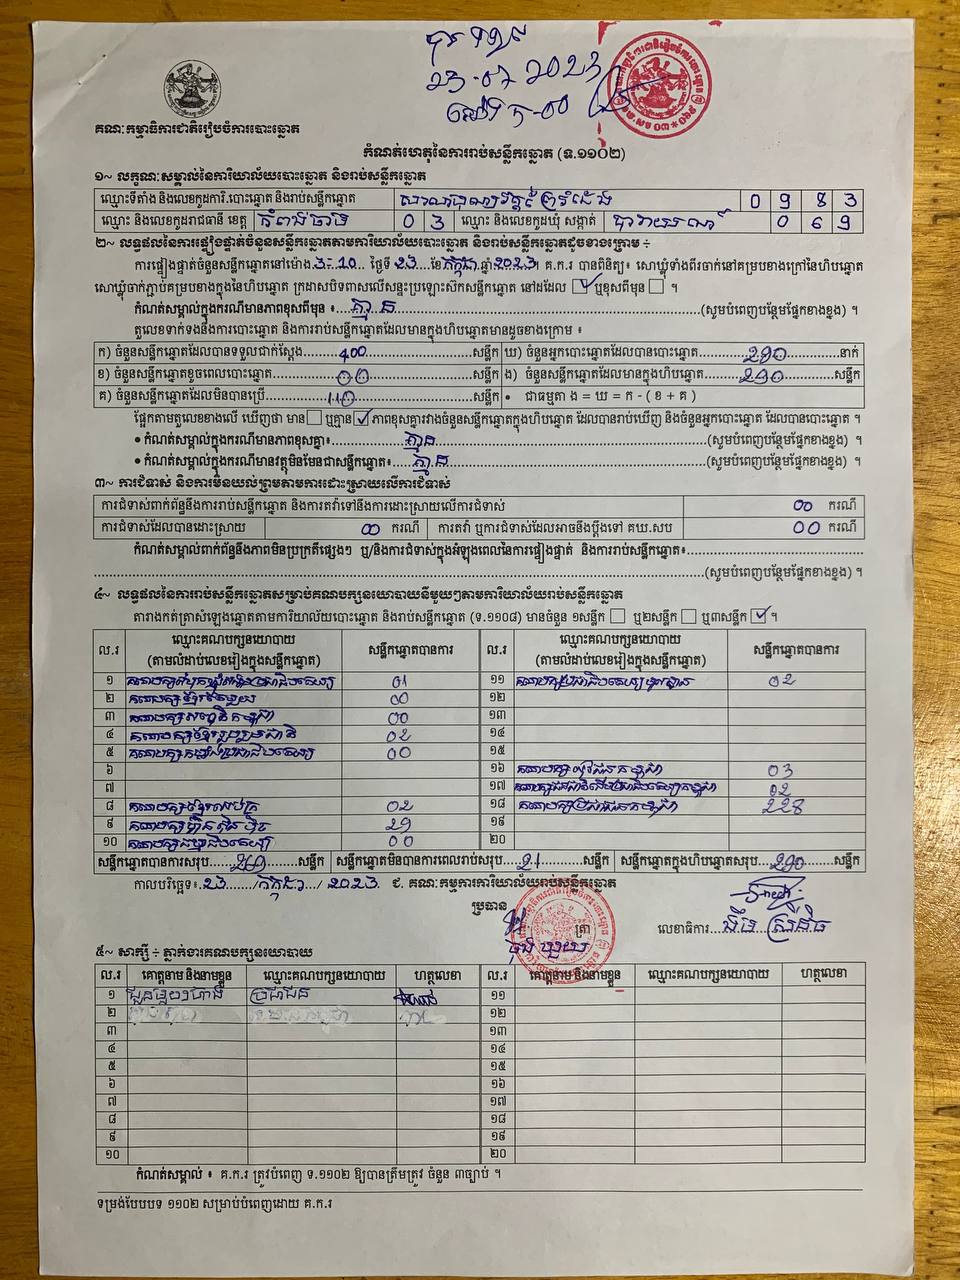 23-07 2023
គណៈកម្មាធិការជាតិរៀបចំការបោះឆ្នោត
កំណត់ហេតុនៃការរាប់សន្លឹកឆ្នោត (ទ.១១០២)
១~ លក្ខណៈសម្គាល់នៃការិយាល័យបោះឆ្នោត និងរាប់សន្លឹកឆ្នោត
ឈ្មោះទីតាំង និងលេខកូដការិ.បោះឆ្នោត និងរាប់សន្លឹកឆ្នោត 0 9 8 3
ឈ្មោះ និងលេខកូដរាជធានី ខេត្ត កំពង់ចាម 0 3 ឈ្មោះ និងលេខកូដឃុំ សង្កាត់ 0 6 9
២~ លទ្ធផលនៃការផ្ទៀងផ្ទាត់ចំនួនសន្លឹកឆ្នោតតាមការិយាល័យបោះឆ្នោត និងរាប់សន្លឹកឆ្នោតដូចខាងក្រោម ៖
ការផ្ទៀងផ្ទាត់ចំនួនសន្លឹកឆ្នោតនៅម៉ោង 3-10 ថ្ងៃទី 23 ខែ កក្កដា ឆ្នាំ 2023 ។ គ.ក.រ បានពិនិត្យ៖ សោឃ្លុំទាំងពីរចាក់នៅគម្របខាងក្រៅនៃហិបឆ្នោត
សោឃ្លុំចាក់ភ្ជាប់គម្របខាងក្នុងនៃហិបឆ្នោត ក្រដាសបិទពាសលើសន្ទះប្រឡោះស៊កសន្លឹកឆ្នោត នៅដដែល ✓ ឬខុសពីមុន ។
កំណត់សម្គាល់ក្នុងករណីមានភាពខុសពីមុន ៖ គ្មាន (សូមបំពេញបន្ថែមផ្នែកខាងខ្នង) ។
តួលេខទាក់ទងនឹងការបោះឆ្នោត និងការរាប់សន្លឹកឆ្នោតដែលមានក្នុងហិបឆ្នោតមានដូចខាងក្រោម ៖
ក) ចំនួនសន្លឹកឆ្នោតដែលបានទទួលជាក់ស្តែង 400 សន្លឹក ឃ) ចំនួនអ្នកបោះឆ្នោតដែលបានបោះឆ្នោត 290 នាក់
ខ) ចំនួនសន្លឹកឆ្នោតខូចពេលបោះឆ្នោត 00 សន្លឹក ង) ចំនួនសន្លឹកឆ្នោតដែលមានក្នុងហិបឆ្នោត 290 សន្លឹក
គ) ចំនួនសន្លឹកឆ្នោតដែលមិនបានប្រើ 110 សន្លឹក • ជាធម្មតា ង = ឃ = ក - ( ខ + គ )
ផ្អែកតាមតួលេខខាងលើ ឃើញថា មាន ឬគ្មាន ✓ ភាពខុសគ្នារវាងចំនួនសន្លឹកឆ្នោតក្នុងហិបឆ្នោត ដែលបានរាប់ឃើញ និងចំនួនអ្នកបោះឆ្នោត ដែលបានបោះឆ្នោត ។
• កំណត់សម្គាល់ក្នុងករណីមានភាពខុសគ្នា៖ គ្មាន (សូមបំពេញបន្ថែមផ្នែកខាងខ្នង) ។
• កំណត់សម្គាល់ក្នុងករណីមានវត្ថុមិនមែនជាសន្លឹកឆ្នោត៖ គ្មាន (សូមបំពេញបន្ថែមផ្នែកខាងខ្នង) ។
៣~ ការជំទាស់ និងការមិនយល់ព្រមតាមការដោះស្រាយលើការជំទាស់
ការជំទាស់ពាក់ព័ន្ធនឹងការរាប់សន្លឹកឆ្នោត និងការតវ៉ាទៅនឹងការដោះស្រាយលើការជំទាស់ 00 ករណី
ការជំទាស់ដែលបានដោះស្រាយ 00 ករណី ការតវ៉ា ឬការជំទាស់ដែលអាចនឹងប្តឹងទៅ គឃ.សប 00 ករណី
កំណត់សម្គាល់ពាក់ព័ន្ធនឹងភាពមិនប្រក្រតីផ្សេងៗ ឬ/និងការជំទាស់ក្នុងអំឡុងពេលនៃការផ្ទៀងផ្ទាត់ និងការរាប់សន្លឹកឆ្នោត៖
(សូមបំពេញបន្ថែមផ្នែកខាងខ្នង) ។
៤~ លទ្ធផលនៃការរាប់សន្លឹកឆ្នោតសម្រាប់គណបក្សនយោបាយនីមួយៗតាមការិយាល័យរាប់សន្លឹកឆ្នោត
តារាងកត់ត្រាសំឡេងឆ្នោតតាមការិយាល័យបោះឆ្នោត និងរាប់សន្លឹកឆ្នោត (ទ.១១០៨) មានចំនួន ១សន្លឹក ឬ២សន្លឹក ឬ៣សន្លឹក ✓ ។
ល.រ ឈ្មោះគណបក្សនយោបាយ (តាមលំដាប់លេខរៀងក្នុងសន្លឹកឆ្នោត) សន្លឹកឆ្នោតបានការ ល.រ ឈ្មោះគណបក្សនយោបាយ (តាមលំដាប់លេខរៀងក្នុងសន្លឹកឆ្នោត) សន្លឹកឆ្នោតបានការ
១ 01 ១១ 02
២ គណបក្សខ្មែរតែមួយ 00 ១២
៣ 00 ១៣
៤ គណបក្សខ្មែររួបរួមជាតិ 02 ១៤
៥ 00 ១៥
៦ ១៦ គណបក្សយុវជនកម្ពុជា 03
៧ ១៧ 02
៨ គណបក្សខ្មែរអភិរក្ស 02 ១៨ គណបក្សប្រជាជនកម្ពុជា 228
៩ គណបក្សហ៊្វុនស៊ិនប៉ិច 29 ១៩
១០ 00 ២០
សន្លឹកឆ្នោតបានការសរុប 269 សន្លឹក សន្លឹកឆ្នោតមិនបានការពេលរាប់សរុប 21 សន្លឹក សន្លឹកឆ្នោតក្នុងហិបឆ្នោតសរុប 290 សន្លឹក
កាលបរិច្ឆេទ៖ 23 / កក្កដា / 2023 ជ. គណៈកម្មការការិយាល័យរាប់សន្លឹកឆ្នោត
ប្រធាន
ត្រា លេខាធិការ
៥~ សាក្សី ៖ ភ្នាក់ងារគណបក្សនយោបាយ
ល.រ គោត្តនាម និងនាមខ្លួន ឈ្មោះគណបក្សនយោបាយ ហត្ថលេខា ល.រ គោត្តនាម និងនាមខ្លួន ឈ្មោះគណបក្សនយោបាយ ហត្ថលេខា
១ ប្រជាជន ១១
២ ១២
៣ ១៣
៤ ១៤
៥ ១៥
៦ ១៦
៧ ១៧
៨ ១៨
៩ ១៩
១០ ២០
កំណត់សម្គាល់ ៖ គ.ក.រ ត្រូវបំពេញ ទ.១១០២ ឱ្យបានត្រឹមត្រូវ ចំនួន ៣ច្បាប់ ។
ទម្រង់បែបបទ ១១០២ សម្រាប់បំពេញដោយ គ.ក.រ